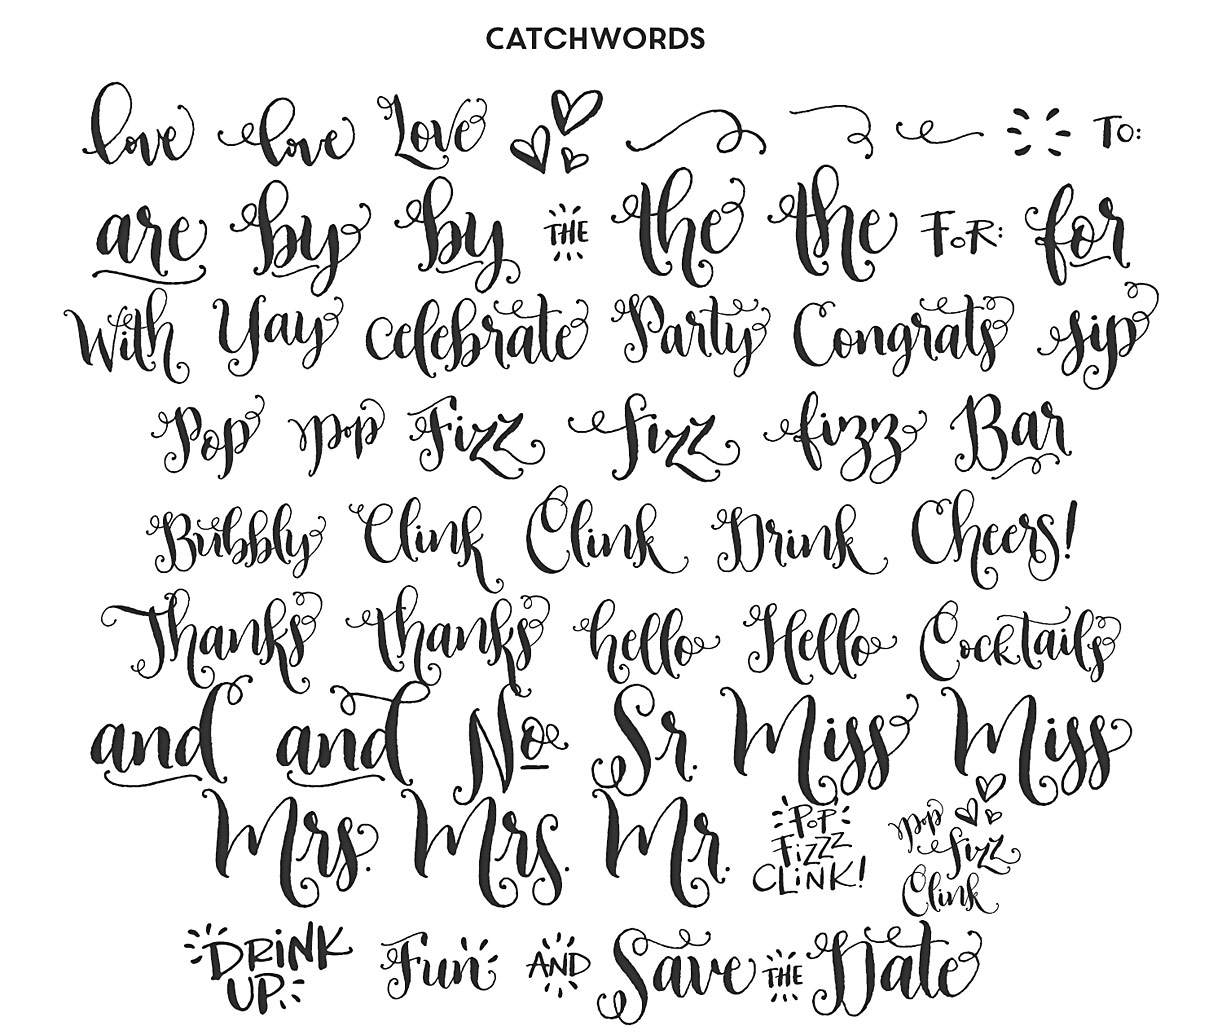 CATCHWORDS
love love Love To:
are by by THE the the FoR: for
With Yay celebrate Party Congrats sip
Pop pop Fizz fizz fizz Bar
Bubbly Clink Clink Drink Cheers!
Thanks thanks hello Hello Cocktails
and and No Sr. Miss Miss
Mrs. Mrs. Mr. PoP FiZZZ CLiNK! pop fizz Clink
DRiNK UP Fun AND Save THE Date